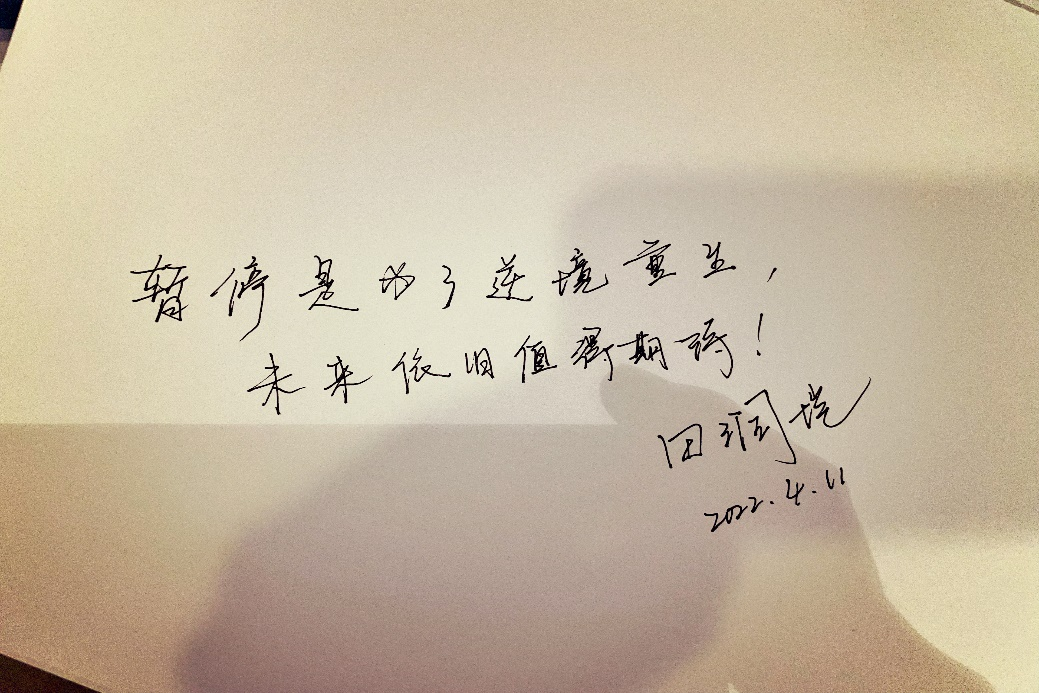 暂停是为了逆境重生，
未来依旧值得期待！
田润垲
2022.4.11